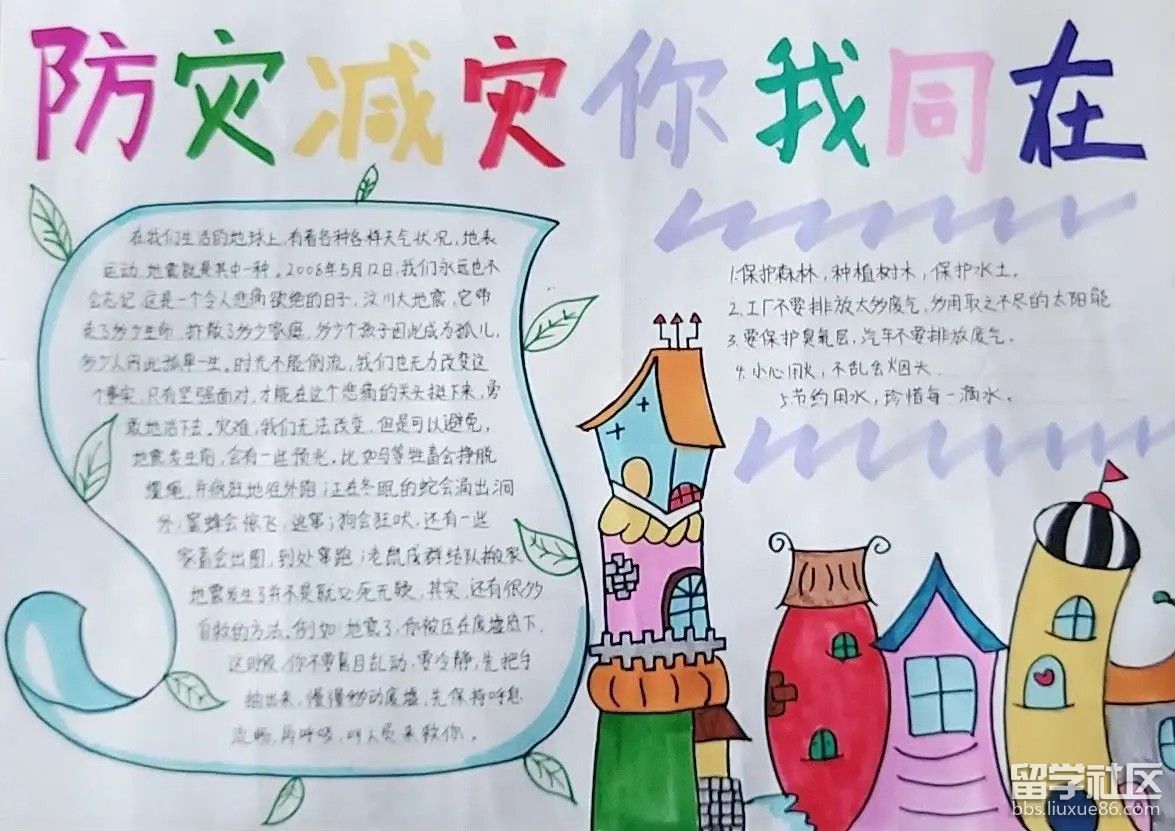 防灾减灾你我同在
在我们生活的地球上,有着各种各样天气状况,地表
运动,地震就是其中一种。2008年5月12日,我们永远也不
会忘记这是一个令人悲痛欲绝的日子,汶川大地震,它带
走了多少生命,拆散了多少家庭,多少个孩子因此成为孤儿,
多少人因此孤单一生,时光不能倒流,我们也无力改变这
个事实,只有坚强面对,才能在这个悲痛的关头挺下来,勇
敢地活下去。灾难,我们无法改变,但是可以避免,
地震发生前,会有一些预兆。比如马等牲畜会挣脱
缰绳,并疯狂地往外跑;正在冬眠的蛇会涌出洞
外;蜜蜂会惊飞,逃窜;狗会狂吠,还有一些
家畜会出圈,到处窜跑;老鼠成群结队搬家
地震发生了并不是就必死无疑,其实,还有很多
自救的方法,例如:地震了,你被压在废墟底下,
这时候,你不要盲目乱动,要冷静,先把手
抽出来,慢慢挪动废墟,先保持呼吸
流畅,再呼喊,叫人员来救你。
1.保护森林,种植树木,保护水土。
2.工厂不要排放太多废气,多用取之不尽的太阳能
3.要保护臭氧层,汽车不要排放废气。
4.小心用火,不乱丢烟头.
5节约用水,珍惜每一滴水。
留学社区
bbs.liuxue86.com